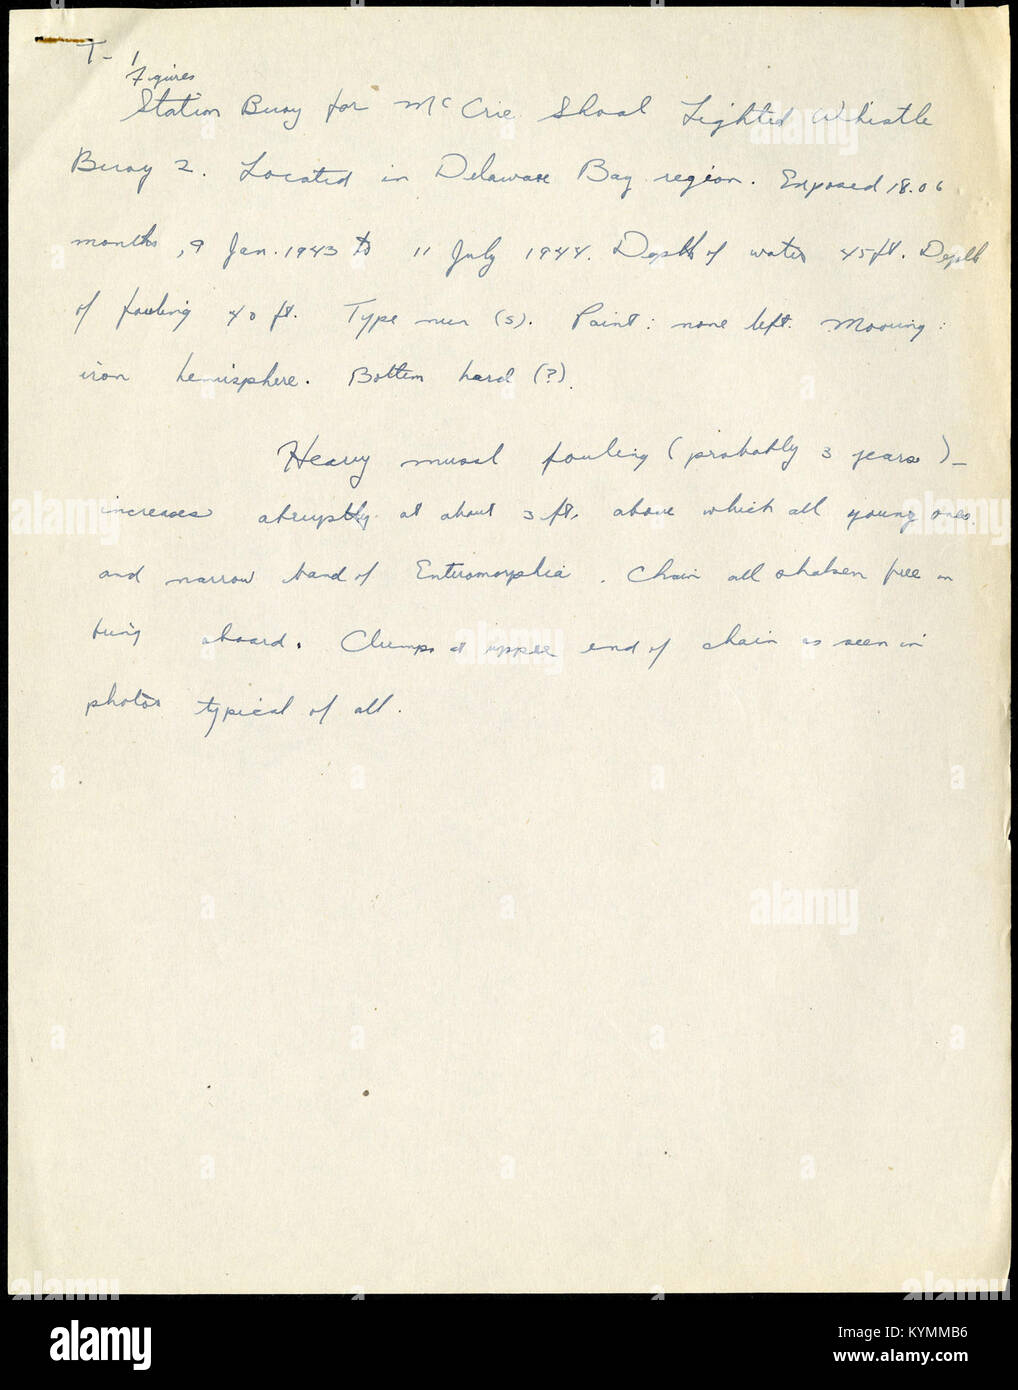 T-1
Figures
Station Buoy for McCrie Shoal Lighted Whistle
Buoy 2. Located in Delaware Bay region. Exposed 18.06
months, 9 Jan. 1943 to 11 July 1944. Depth of water 45 ft. Depth
of fouling 40 ft. Type nun (s). Paint: none left. Mooring:
iron hemisphere. Bottom hard (?).
Heavy mussel fouling (probably 3 years) -
increases abruptly at about 3 ft. above which all young ones
and narrow band of Enteromorpha. Chain all shaken free in
being aboard. Clumps at upper end of chain as seen in
photos typical of all.
alamy
Image ID: KYMMB6
www.alamy.com